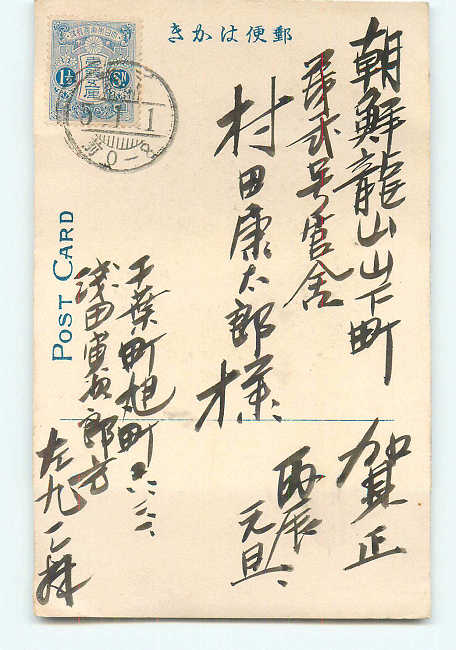 郵便はかき
朝鮮龍山山下町
第弐号官舎
村田康太郎様
賀正
丙辰
元旦
千葉町旭町六三一
浅田寅次郎方
POST CARD
1½ Sn